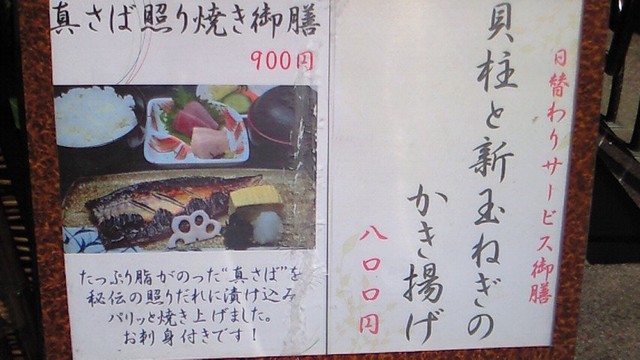 真さば照り焼き御膳
900円
たっぷり脂がのった"真さば"を
秘伝の照りだれに漬け込み
パリッと焼き上げました。
お刺身付きです!
日替わりサービス御膳
貝柱と新玉ねぎの
かき揚げ
八〇〇円